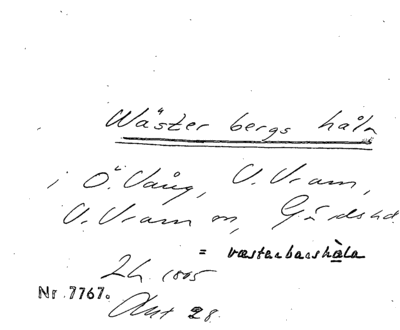 Wäster bergs håla
i Ö. Vång, V. Vram,
V. Vram sn, Gärds hd
= væstɐbærshåla
Lh. 1805
Nr 7767.
Akt 28.